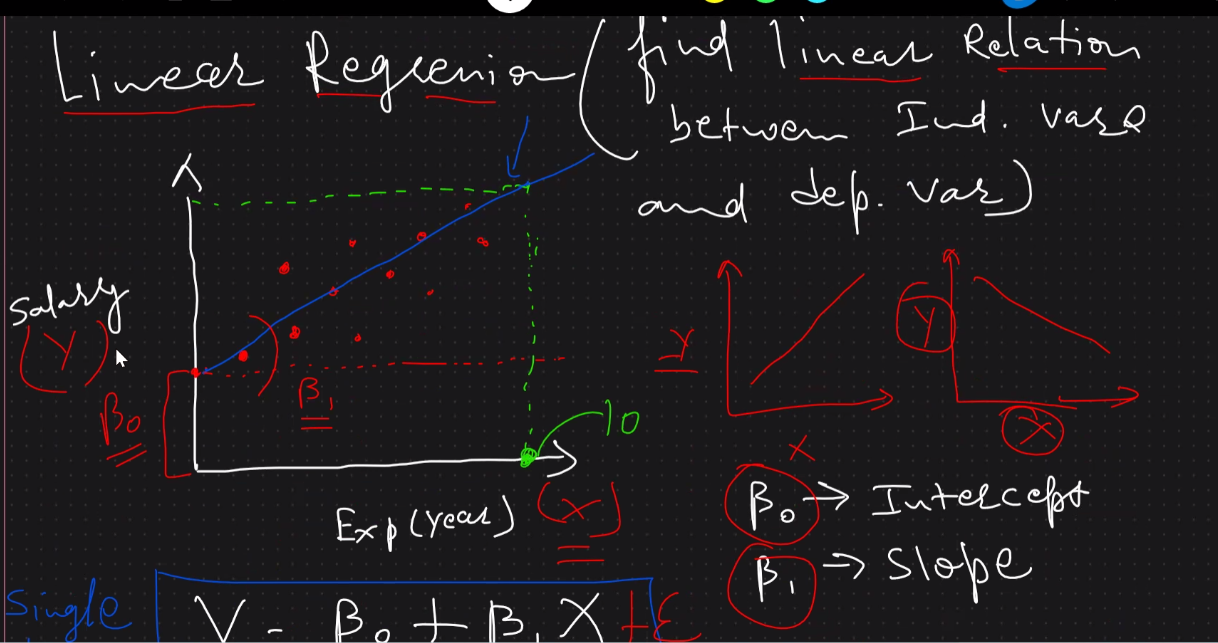 Linear Regression (find linear Relation
between Ind. var
and dep. var)
Salary
(Y)
β0
β1
10
Exp(year) (X)
Y
X
Y
X
β0 → Intercept
β1 → Slope
Single
Y = β0 + β1 X + ε